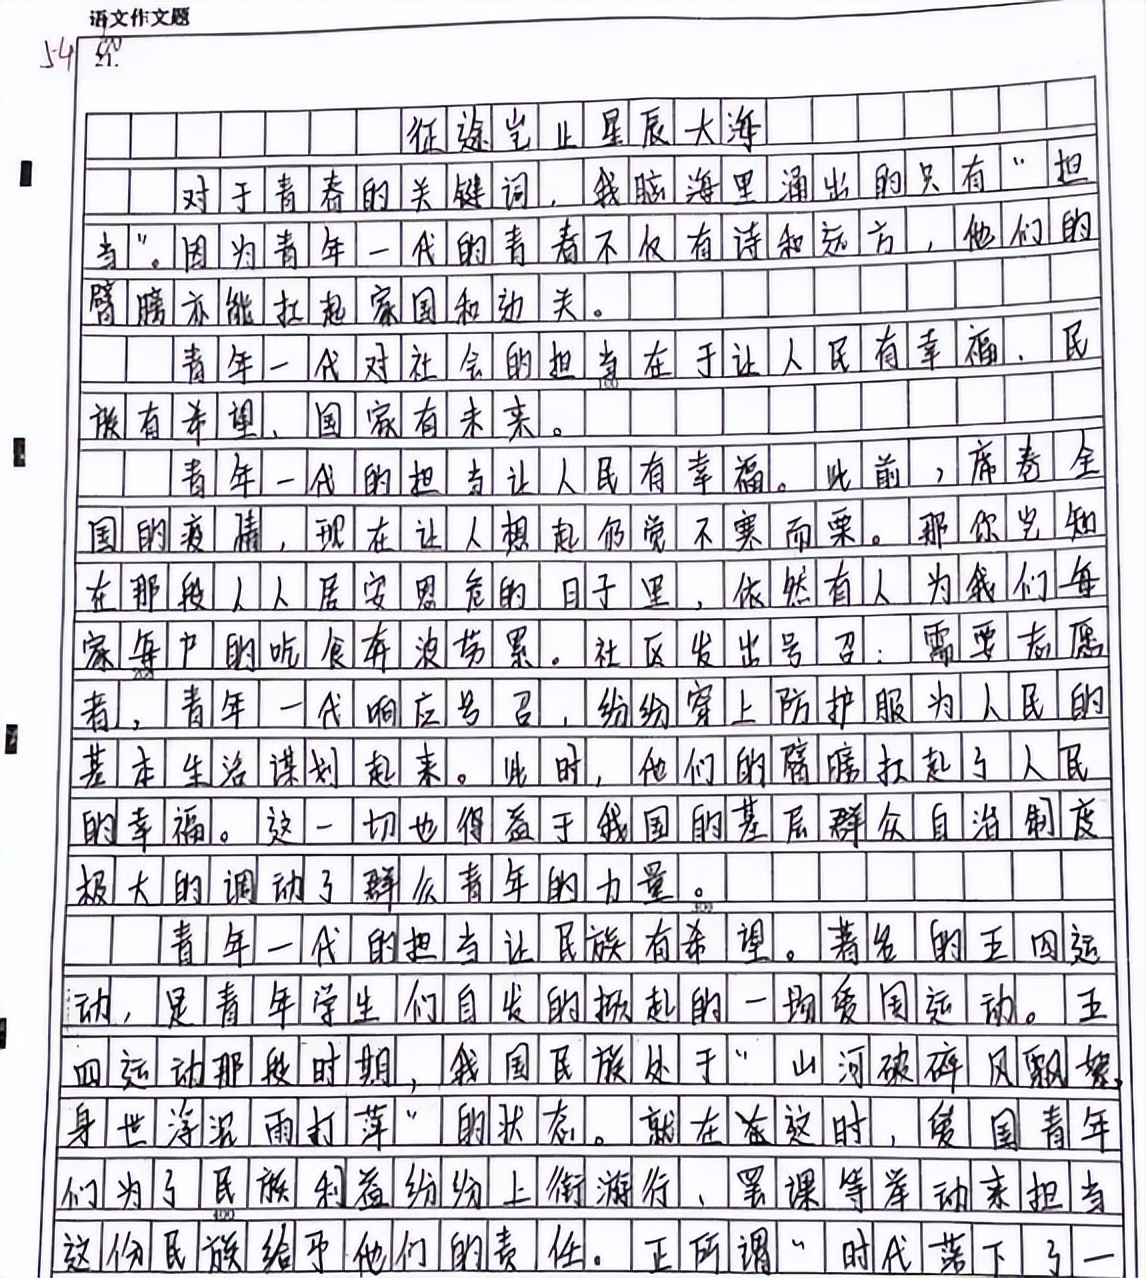 语文作文题
54
21.
征途岂止星辰大海
对于青春的关键词，我脑海里涌出的只有“担
当”。因为青年一代的青春不仅有诗和远方，他们的
臂膀亦能扛起家国和功夫。
青年一代对社会的担当在于让人民有幸福、民
族有希望、国家有未来。
青年一代的担当让人民有幸福。此前，席卷全
国的疫情，现在让人想起仍觉不寒而栗。那你岂知
在那段人人居安思危的日子里，依然有人为我们每
家每户的吃食奔波劳累。社区发出号召：需要志愿
者，青年一代响应号召，纷纷穿上防护服为人民的
基本生活谋划起来。此时，他们的臂膀扛起了人民
的幸福。这一切也得益于我国的基层群众自治制度
极大的调动了群众青年的力量。
青年一代的担当让民族有希望。著名的五四运
动，是青年学生们自发的掀起的一场爱国运动。五
四运动那段时期，我国民族处于“山河破碎风飘絮，
身世浮沉雨打萍”的状态。就在在这时，爱国青年
们为了民族利益纷纷上街游行、罢课等举动来担当
这份民族给予他们的责任。正所谓“时代落下了一